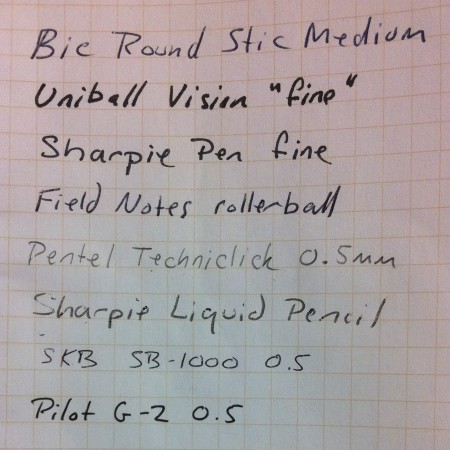 Bic Round Stic Medium
Uniball Vision "fine"
Sharpie Pen fine
Field Notes rollerball
Pentel Techniclick 0.5mm
Sharpie Liquid Pencil
SKB SB-1000 0.5
Pilot G-2 0.5